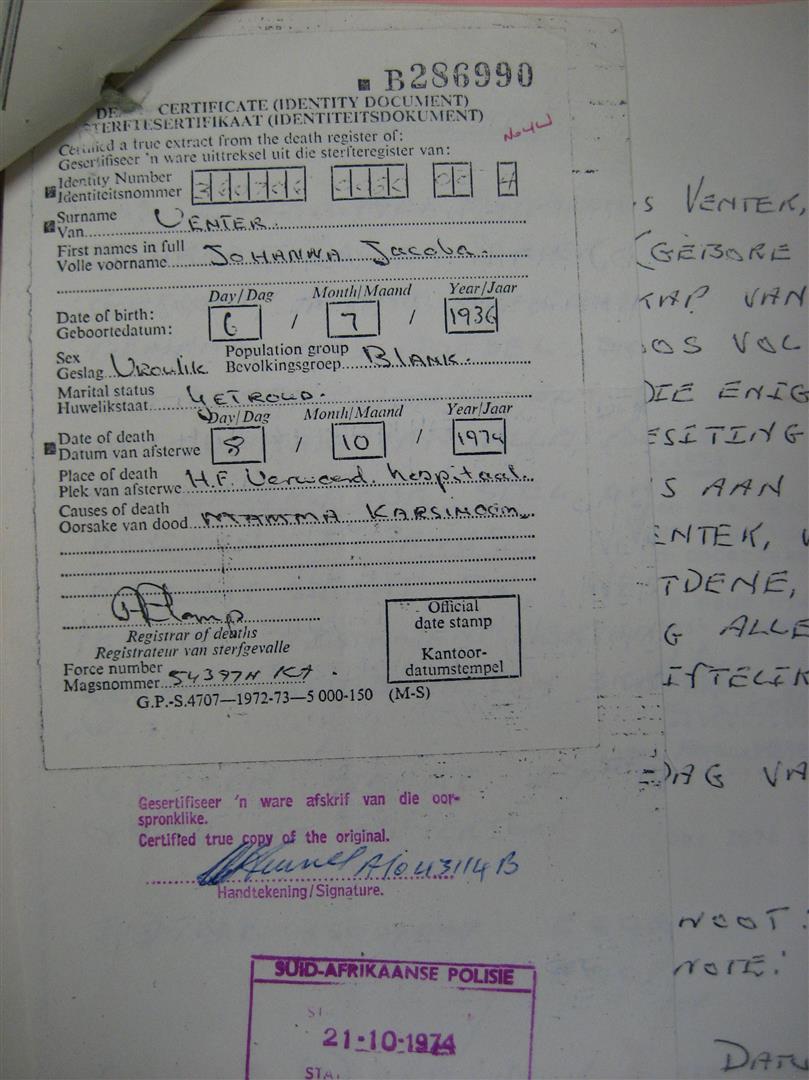 B286990
CERTIFICATE (IDENTITY DOCUMENT)
STERFTESERTIFIKAAT (IDENTITEITSDOKUMENT)
Certified a true extract from the death register of:
Gesertifiseer 'n ware uittreksel uit die sterfteregister van:
Identity Number
Identiteitsnommer
Surname
Van VENTER.
First names in full
Volle voorname JOHANNA Jacoba.
Day/Dag Month/Maand Year/Jaar
Date of birth:
Geboortedatum: 6 / 7 / 1936
Sex Population group
Geslag Vroulik Bevolkingsgroep BLANK.
Marital status
Huwelikstaat GETROUD.
Day/Dag Month/Maand Year/Jaar
Date of death
Datum van afsterwe 8 / 10 / 1974
Place of death
Plek van afsterwe H.F. Verwoerd. hospitaal.
Causes of death
Oorsake van dood MAMMA KARSINOOM
Registrar of deaths
Registrateur van sterfgevalle
Force number
Magsnommer 54397N KT.
Official
date stamp
Kantoor-
datumstempel
G.P.-S.4707—1972-73—5 000-150 (M-S)
Gesertifiseer 'n ware afskrif van die oor-
spronklike.
Certified true copy of the original.
Handtekening/Signature.
SUID-AFRIKAANSE POLISIE
21-10-1974
S VENTER,
(GEBORE
KAP VAN
OOS VOL
DIE ENIG
ESITING
S AAN
ENTER, V
TDENE,
G ALLE
IFTELIK
DAG VA
NOOT:
NOTE:
DATU